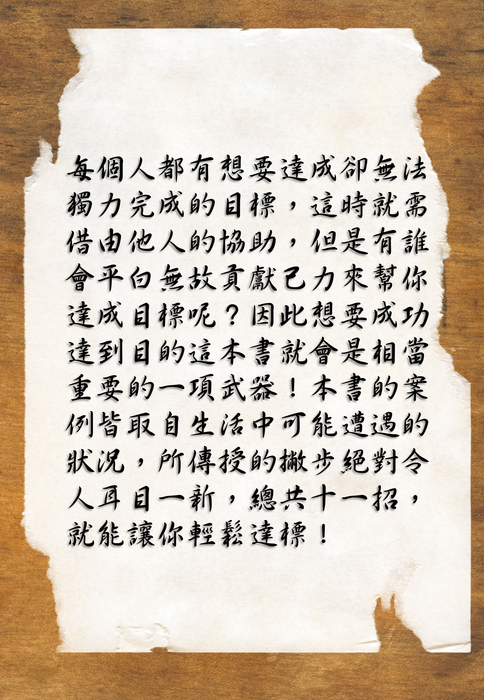 每個人都有想要達成卻無法
獨力完成的目標，這時就需
借由他人的協助，但是有誰
會平白無故貢獻己力來幫你
達成目標呢？因此想要成功
達到目的這本書就會是相當
重要的一項武器！本書的案
例皆取自生活中可能遭遇的
狀況，所傳授的撇步絕對令
人耳目一新，總共十一招，
就能讓你輕鬆達標！